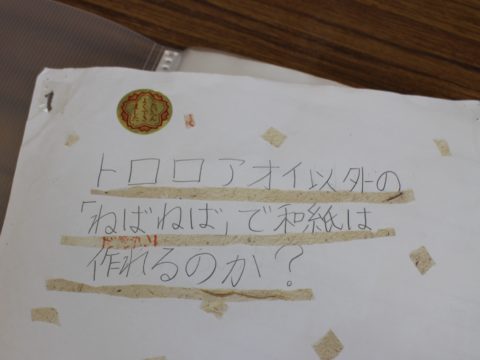 トロロアオイ以外の
「ねばねば」で和紙は
作れるのか?